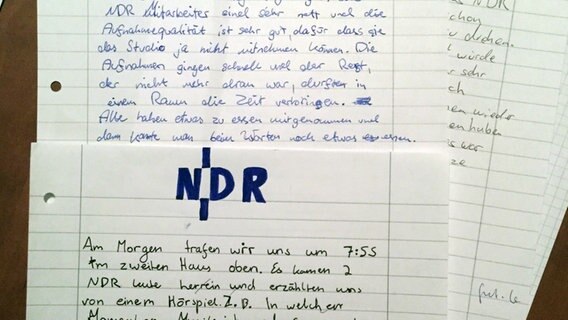 NDR Mitarbeiter sind sehr nett und die
Aufnahmequalität ist sehr gut, dafür dass sie
das Studio ja nicht mitnehmen können. Die
Aufnahmen gingen schnell und der Rest,
der nicht mehr dran war, durften in
einem Raum die Zeit verbringen.
Alle haben etwas zu essen mitgenommen und
dann konnte man beim Warten noch etwas essen.
NDR
schon
würde
sehr
ch
wieder
haben
war
ze
NDR
Am Morgen trafen wir uns um 7:55
im zweiten Haus oben. Es kamen 2
NDR leute herrein und erzählten uns
von einem Hörspiel. Z.B. In welchen